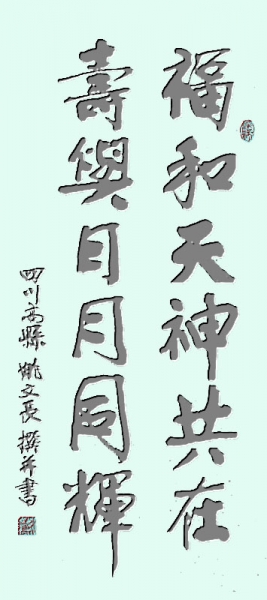 福和天神共在
壽與日月同輝
四川高縣姚文長撰并書